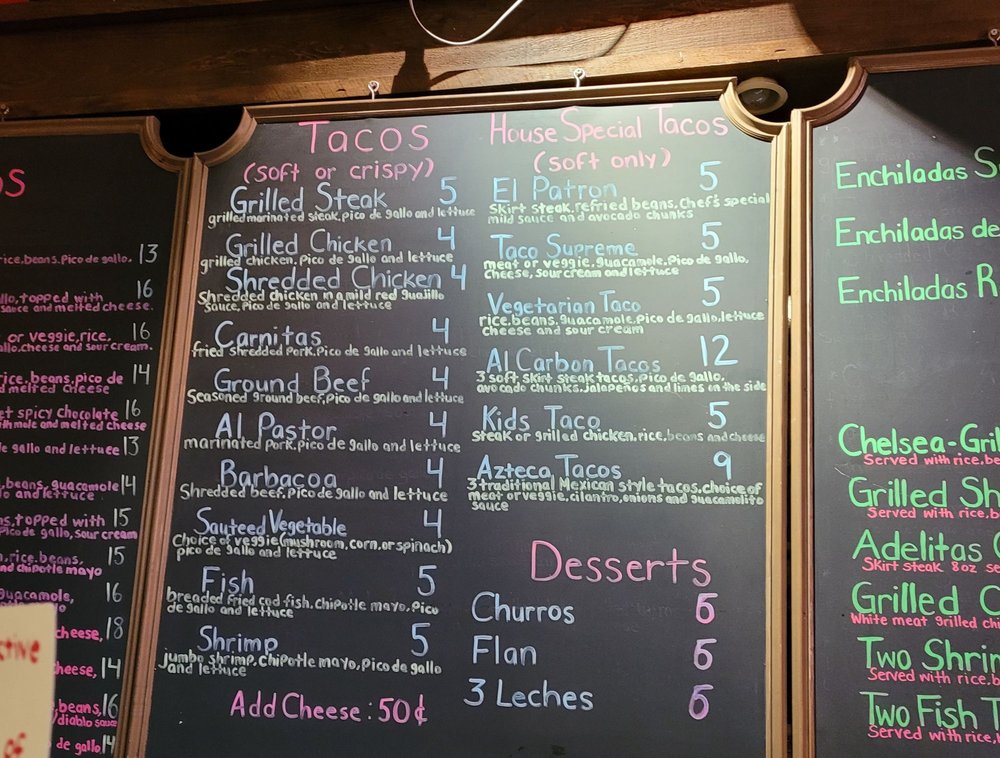 os
rice, beans, Pico de gallo. 13
16
llo, topped with
sauce and melted cheese.
or veggie, rice, 16
allo, cheese and sour cream.
rice, beans, pico de 14
d melted cheese
et spicy chocolate 16
with mole and melted cheese
de gallo and lettuce 13
beans, guacamole 14
lo and lettuce
ns, topped with 15
Pico de gallo, sour cream
rice, beans, 15
and chipotle mayo
guacamole, 16
cheese, 18
heese, 14
beans, 16
/diablo sauce
de gallo 14
stive
of
Tacos
(soft or crispy)
Grilled Steak 5
grilled marinated steak, Pico de gallo and lettuce
Grilled Chicken 4
grilled chicken, Pico de gallo and lettuce
Shredded Chicken 4
Shredded chicken in a mild red guajillo
Sauce, Pico de gallo and lettuce
Carnitas 4
fried shredded Pork, Pico de gallo and lettuce
Ground Beef 4
Seasoned ground beef, Pico de gallo and lettuce
Al Pastor 4
marinated pork, Pico de gallo and lettuce
Barbacoa 4
Shredded beef, Pico de gallo and lettuce
Sauteed Vegetable 4
Choice of veggie (mushroom, corn, or spinach)
pico de gallo and lettuce
Fish 5
breaded fried cod fish, chipotle mayo, Pico
de gallo and lettuce
Shrimp 5
jumbo shrimp, chipotle mayo, Pico de gallo
and lettuce
Add Cheese: 50¢
House Special Tacos
(soft only)
El Patron 5
Skirt steak, refried beans, Chef's special
mild sauce and avocado chunks
Taco Supreme 5
meat or veggie, guacamole, Pico de gallo,
Cheese, sour cream and lettuce
Vegetarian Taco 5
rice, beans, guacamole, Pico de gallo, lettuce
Cheese and sour cream
Al Carbon Tacos 12
3 soft skirt steak tacos, Pico de gallo,
avocado chunks, Jalapeños and limes on the side
Kids Taco 5
Steak or grilled chicken, rice, beans and cheese
Azteca Tacos 9
3 traditional Mexican style tacos, choice of
meat or veggie, cilantro, onions and guacamolito
sauce
Desserts
Churros 6
Flan 6
3 Leches 6
Enchiladas S
Enchiladas de
Enchiladas R
Chelsea-Gril
Served with rice, be
Grilled Sh
Served with rice, b
Adelitas
Skirt steak 8oz se
Grilled C
White meat grilled chi
Two Shrim
Served with rice, b
Two Fish T
Served with rice, b